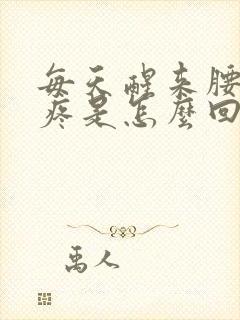 每天醒来腰
疼是怎麼回
禹人